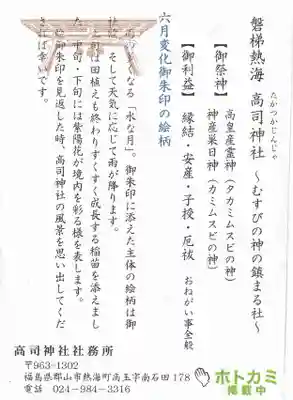 磐梯熱海 高司神社 ～むすびの神の鎮まる社～
たかつかじんじゃ
【御祭神】 高皇産霊神（タカミムスビの神）
神産巣日神（カミムスビの神）
【御利益】 縁結・安産・子授・厄祓 おねがい事全般
六月変化御朱印の絵柄
なくなる「水な月」。御朱印に添えた主体の絵柄は御
そして天気に応じて雨が降ります。
上旬は田植えも終わりすくすく成長する稲苗を添えまし
た。中旬・下旬には紫陽花が境内を彩る様を表します。
御朱印を見返した時、高司神社の風景を思い出してくだ
されば幸いです。
高司神社社務所
〒963-1302
福島県郡山市熱海町高玉字南石田178
電話 024-984-3316
ホトカミ
掲載中